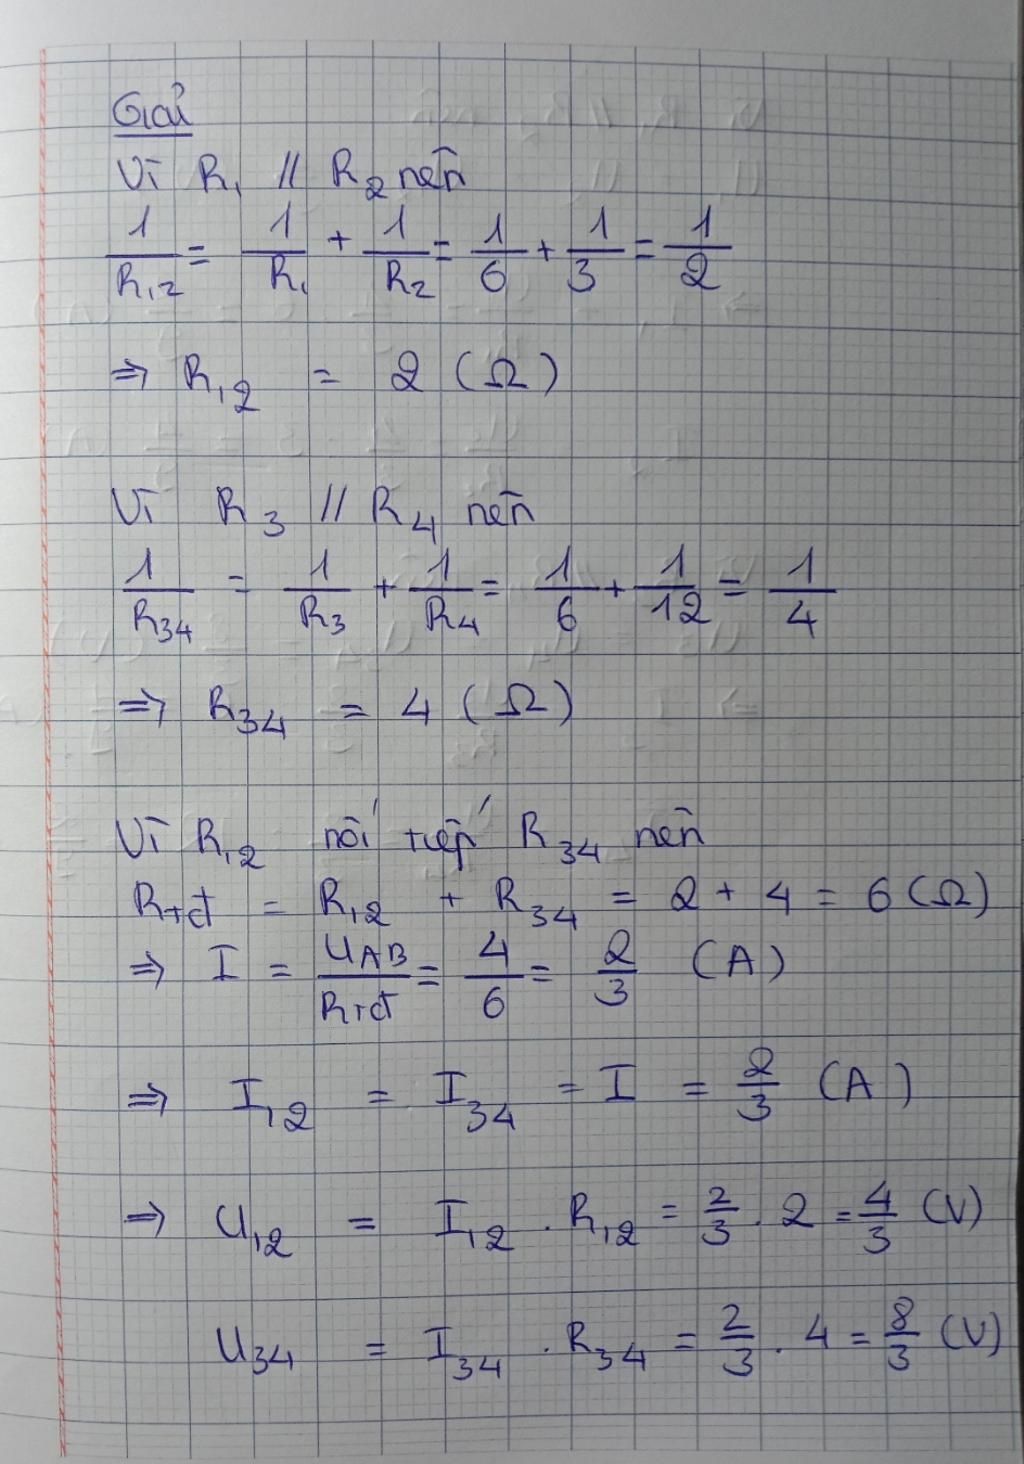 Giải
Vì R₁ // R₂ nên
1/R₁₂ = 1/R₁ + 1/R₂ = 1/6 + 1/3 = 1/2
⇒ R₁₂ = 2 (Ω)
Vì R₃ // R₄ nên
1/R₃₄ = 1/R₃ + 1/R₄ = 1/6 + 1/12 = 1/4
⇒ R₃₄ = 4 (Ω)
Vì R₁₂ nối tiếp R₃₄ nên
Rtđ = R₁₂ + R₃₄ = 2 + 4 = 6 (Ω)
⇒ I = U_AB/Rtđ = 4/6 = 2/3 (A)
⇒ I₁₂ = I₃₄ = I = 2/3 (A)
⇒ U₁₂ = I₁₂ . R₁₂ = 2/3 . 2 = 4/3 (V)
U₃₄ = I₃₄ . R₃₄ = 2/3 . 4 = 8/3 (V)